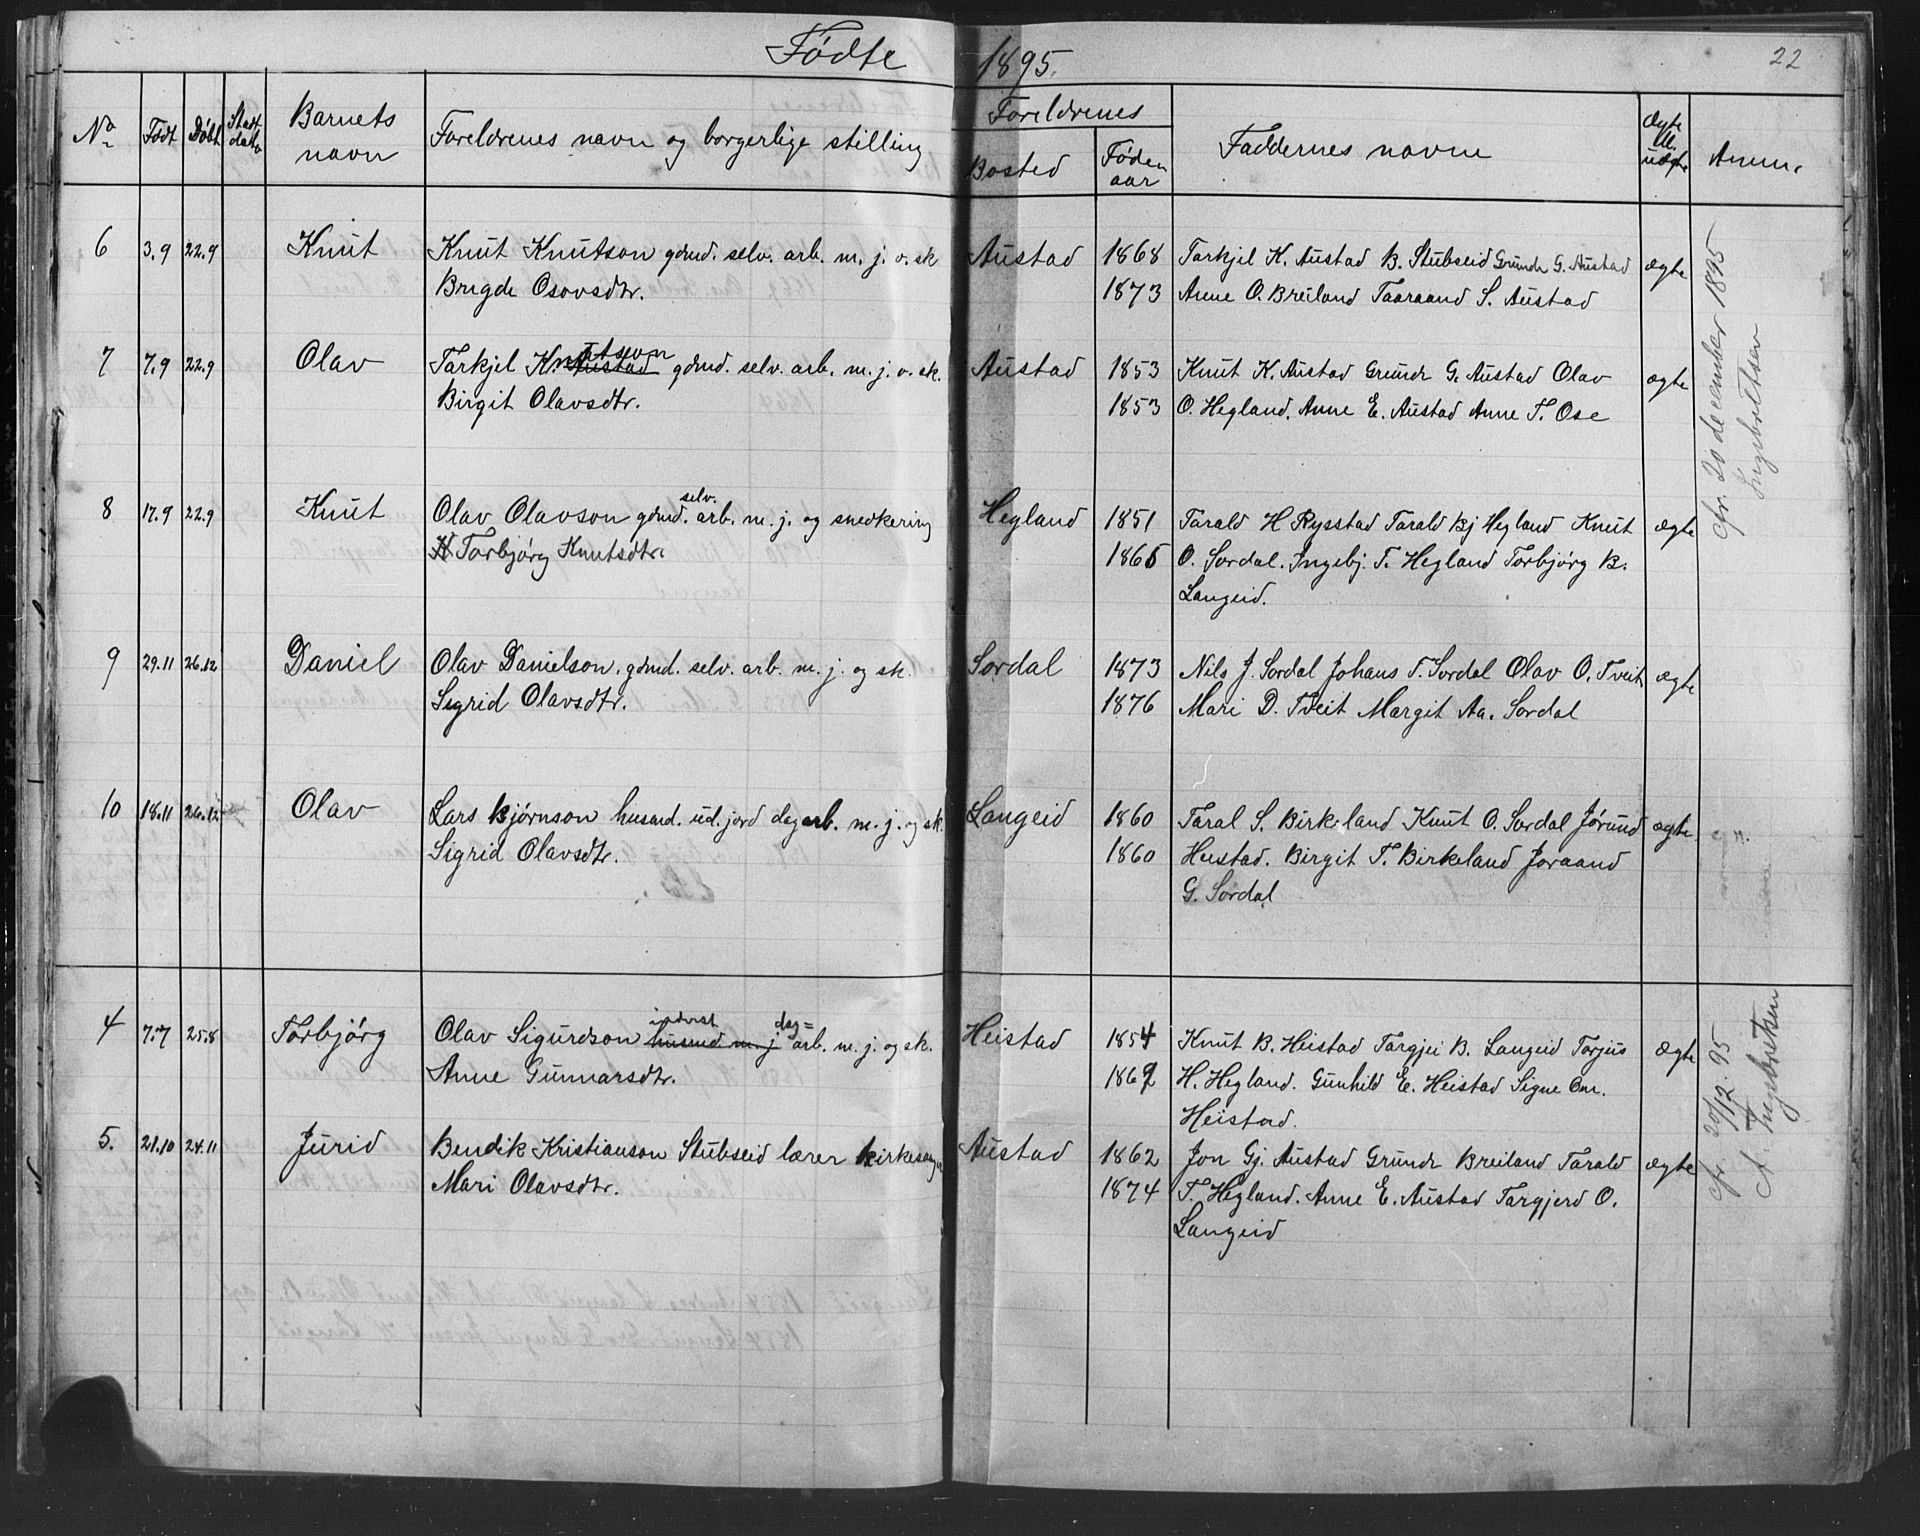 Fødte 1895. 22
No Født Døbt Stadf. dato Barnets navn Foreldrenes navn og borgerlige stilling Foreldrenes Bosted Føde aar Faddernes navne Ægte ell. uægte Anm.
6 3.9 22.9 Knut Knut Knutson gdmd. selv. arb. m. j. o. sk Austad 1868 Tarkjel K. Austad B. Stubseid Grundr G. Austad ægte
Brugde Osovsdtr. 1873 Anne O. Breiland Taaraand S. Austad
7 7.9 22.9 Olav Tarkjel Knutson gdmd. selv. arb. m. j. o. sk. Austad 1853 Knut K. Austad Grundr G. Austad Olav ægte
Birgit Olavsdtr. 1853 O. Hegland. Anne E. Austad Anne T. Ose
8 17.9 22.9 Knut Olav Olavson gdmd. selv. arb. m. j. og snedkering Hegland 1851 Tarald H Rysstad Tarald Bj Hegland Knut ægte
Torbjørg Knutsdtr. 1865 O. Sordal. Ingebj. T. Hegland Torbjørg B.
Langeid.
cfr. 20 december 1895
Ingebretsen
9 29.11 26.12 Daniel Olav Danielson. gdmd. selv. arb. m. j. og sk. Sordal 1873 Nils J. Sordal Johans T. Sordal Olav O. Tveit ægte
Sigrid Olavsdtr. 1876 Mari D. Tveit Margit Aa. Sordal
10 18.11 26.12 Olav Lars Bjørnson husmd. ud. jord dagarb. m. j. og sk. Langeid 1860 Taral S. Birkeland Knut O. Sordal Jørund ægte.
Sigrid Olavsdtr. 1860 Heistad. Birgit T. Birkeland Joraand
G. Sordal
4 7.7 25.8 Torbjørg Olav Sigurdson inderst husmd m. j dag= arb. m. j. og sk. Heistad 1854 Knut B. Heistad Targjei B. Langeid Torjus ægte
Anne Gunnarsdtr. 1862 H. Hegland. Gunhild E. Heistad Signe Om.
Heistad.
5. 21.10 24.11 Jurid Bendik Kristianson Stubseid lærer kirkesanger Austad 1862 Jon Gj. Austad Grundr Breiland Tarald ægte
Mari Olavsdtr. 1874 T. Hegland. Anne E. Austad Targjerd O.
Langeid
cfr 20/12. 95
A. Ingebretsen